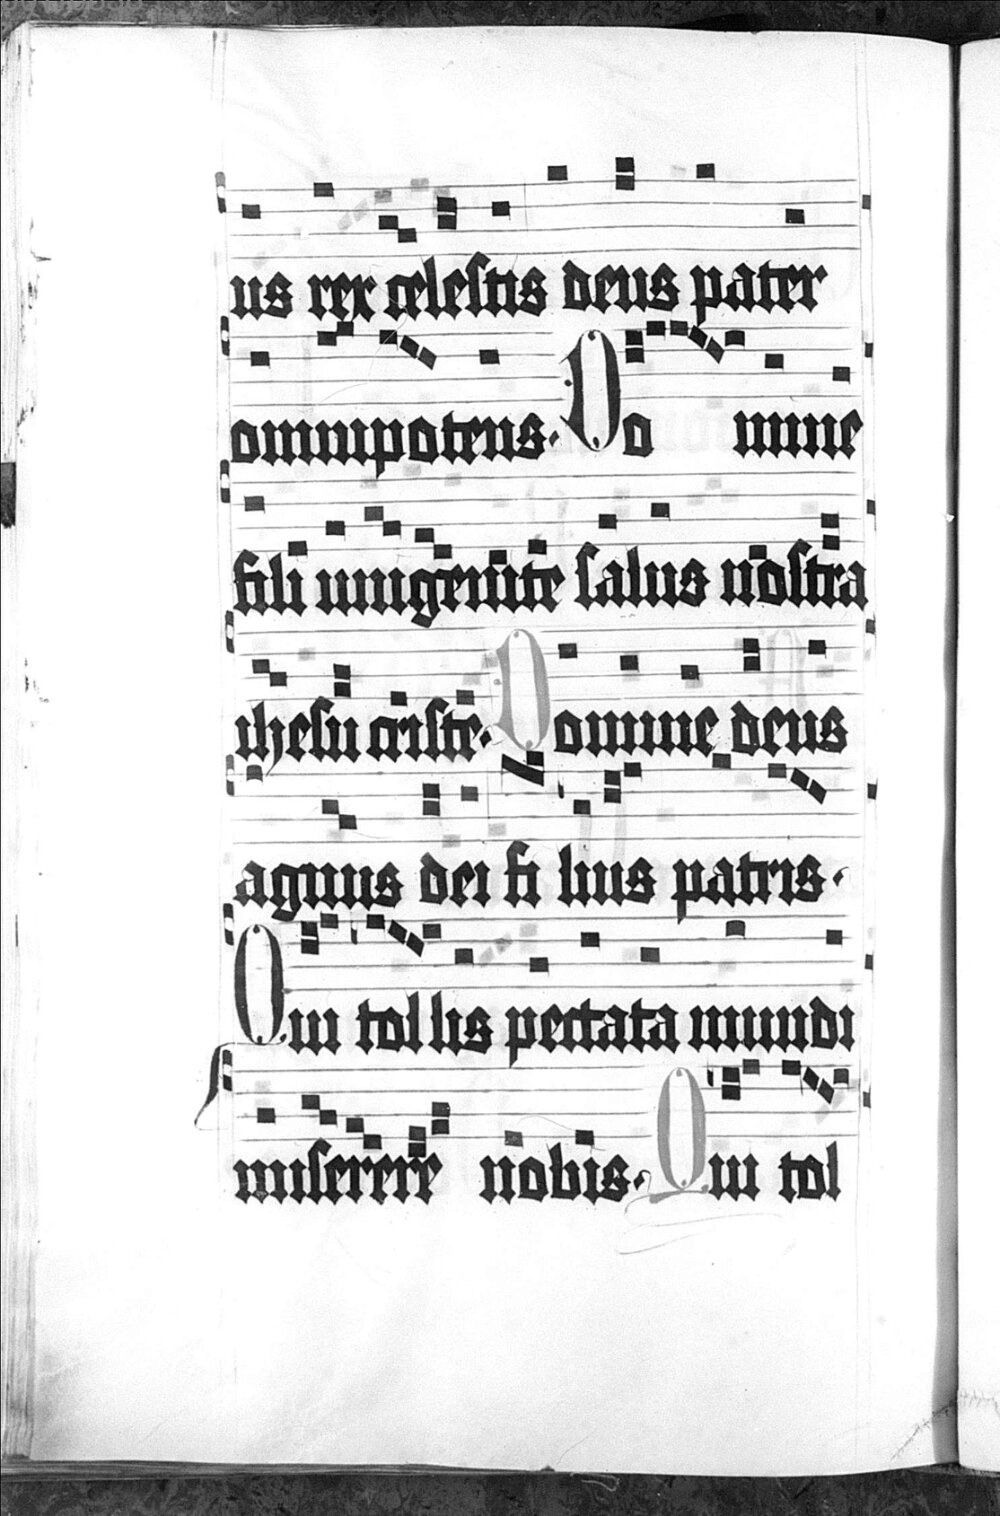 us rex celestis deus pater
omnipotens. Do mine
fili unigenite salus nostra
ihesu criste. Domine deus
agnus dei fi lius patris.
Qui tol lis peccata mundi
miserere nobis. Qui tol